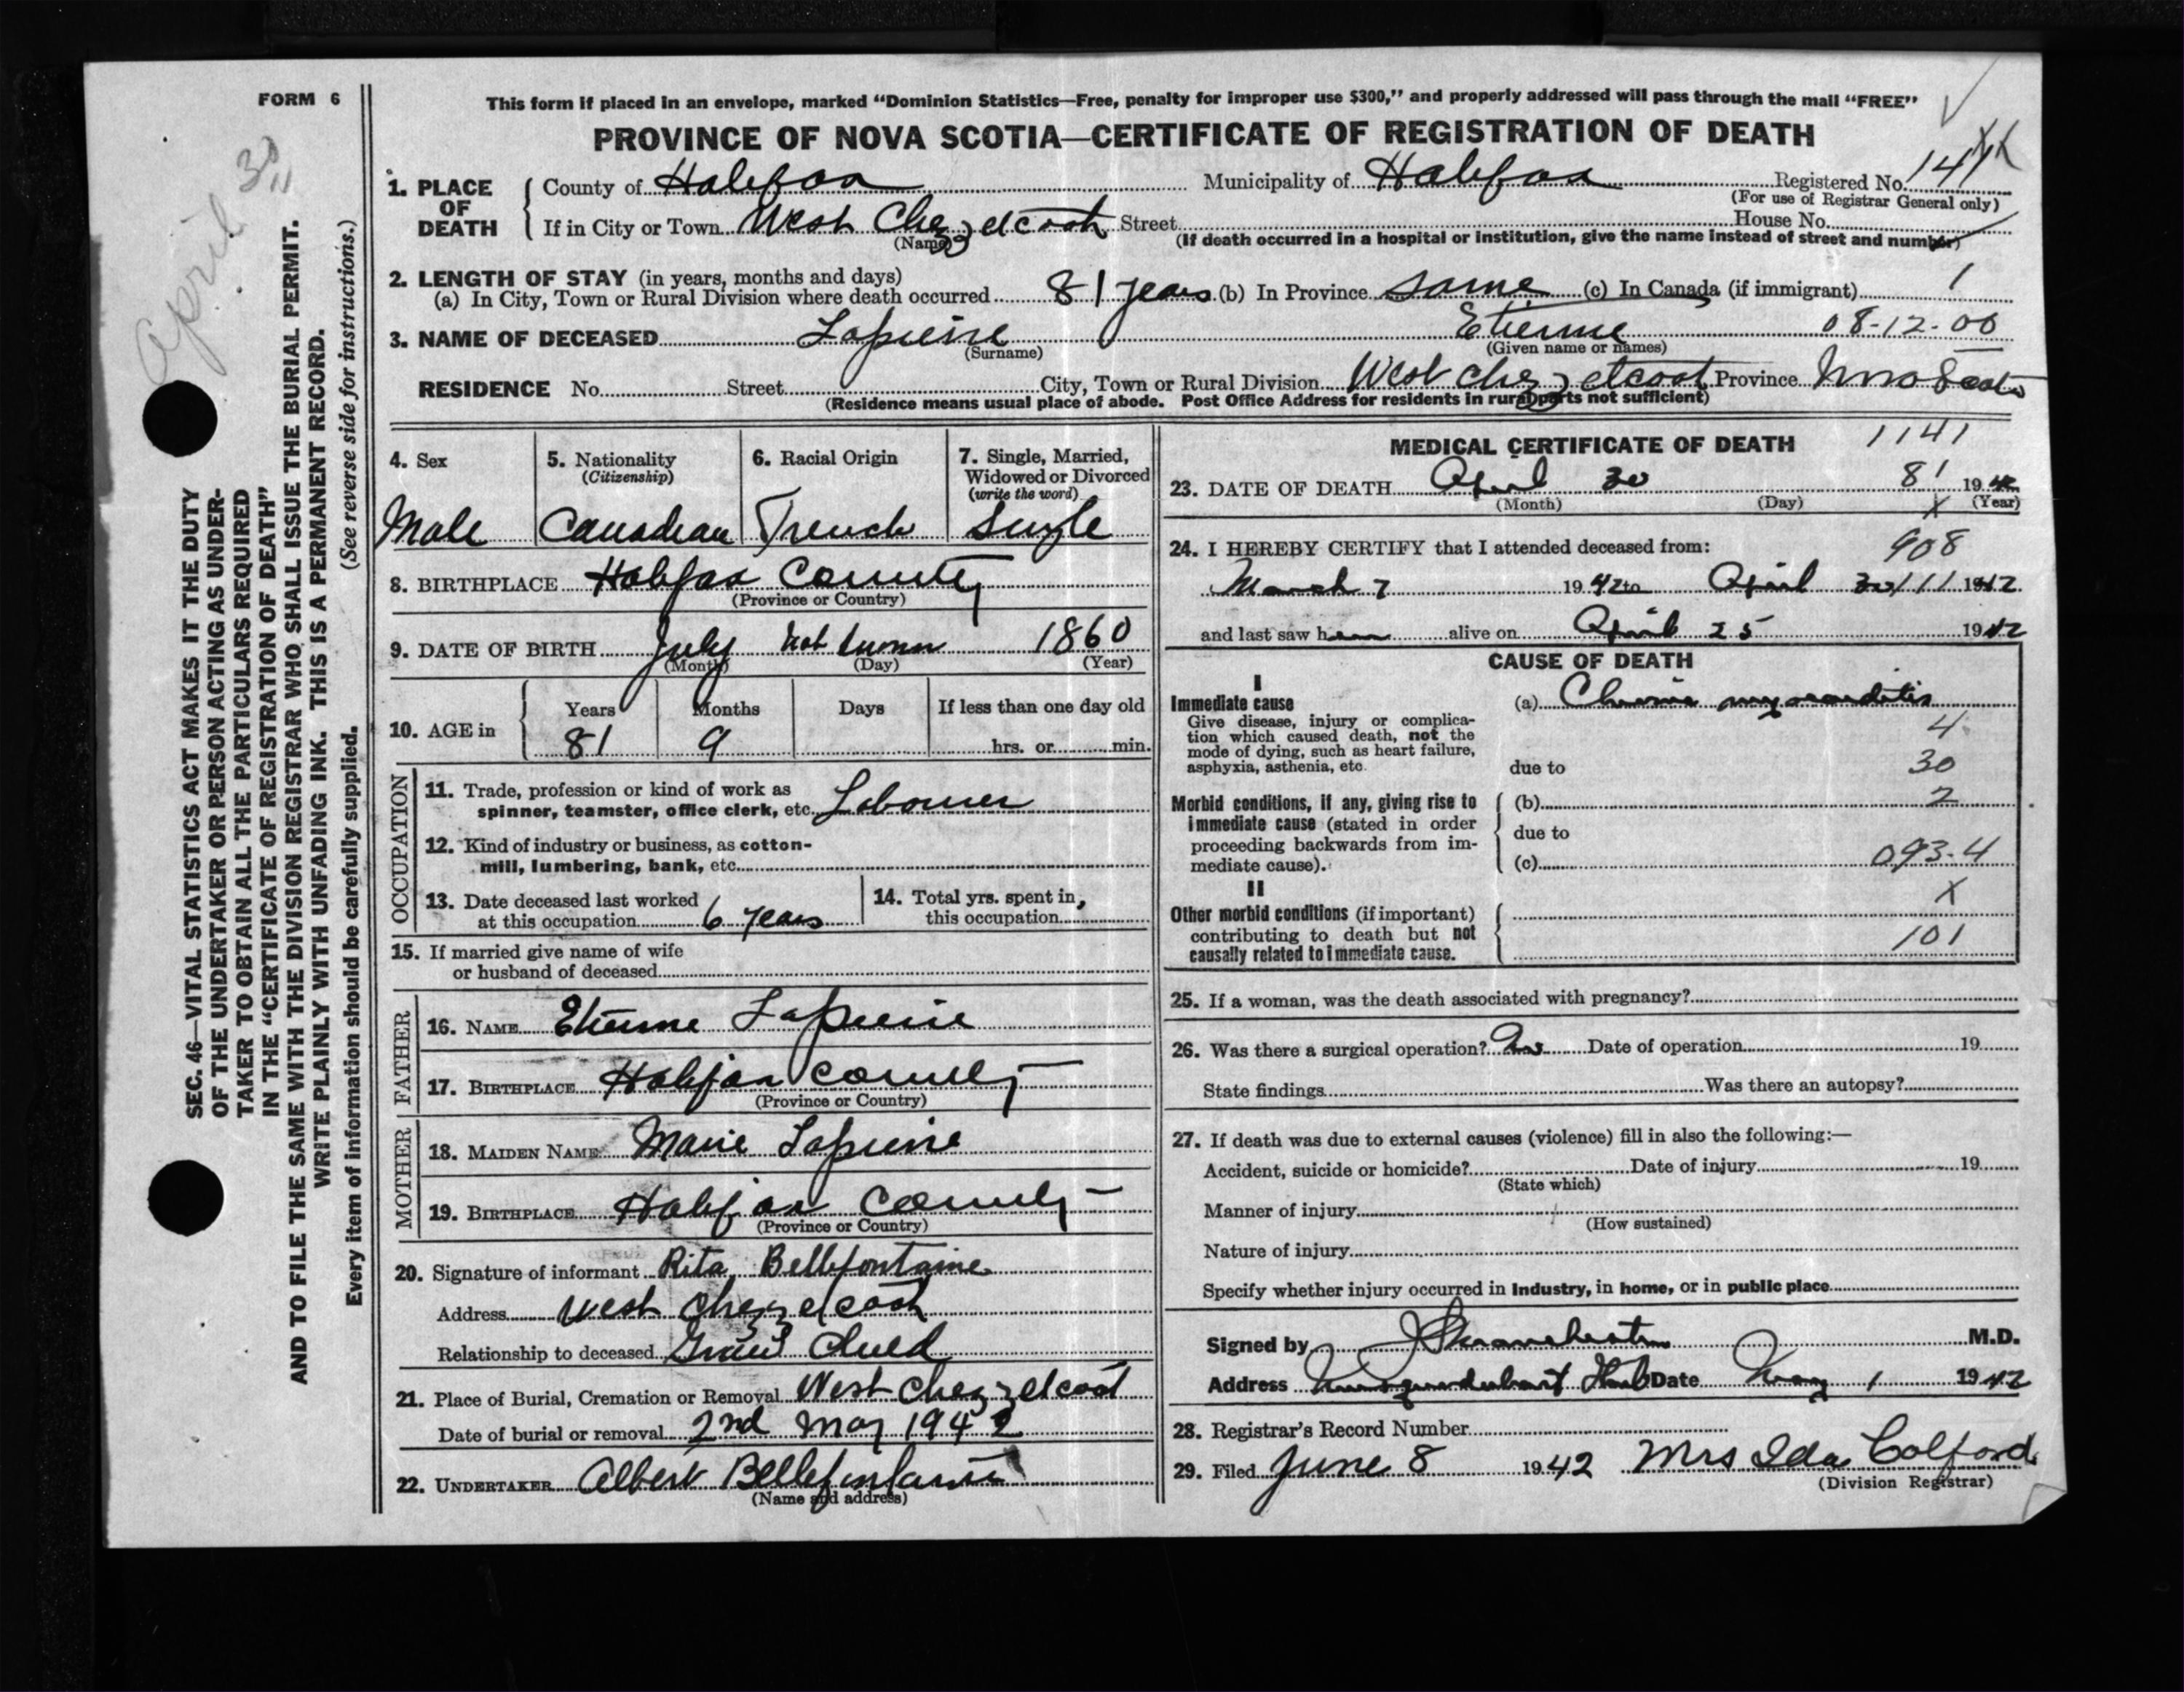 FORM 6
April 30
This form if placed in an envelope, marked “Dominion Statistics—Free, penalty for improper use $300,” and properly addressed will pass through the mail “FREE”
PROVINCE OF NOVA SCOTIA—CERTIFICATE OF REGISTRATION OF DEATH
1. PLACE OF DEATH
County of Halifax Municipality of Halifax Registered No.
(For use of Registrar General only)
If in City or Town West Chezzetcook Street House No.
(Name) (If death occurred in a hospital or institution, give the name instead of street and number)
2. LENGTH OF STAY (in years, months and days)
(a) In City, Town or Rural Division where death occurred 81 years (b) In Province same (c) In Canada (if immigrant) 1
3. NAME OF DECEASED Lapierre Etienne 08-12-00
(Surname) (Given name or names)
RESIDENCE No. Street City, Town or Rural Division West Chezzetcook Province Nova Scotia
(Residence means usual place of abode. Post Office Address for residents in rural parts not sufficient)
4. Sex
Male
5. Nationality
(Citizenship)
Canadian
6. Racial Origin
French
7. Single, Married, Widowed or Divorced
(write the word)
Single
8. BIRTHPLACE Halifax County
(Province or Country)
9. DATE OF BIRTH July not known 1860
(Month) (Day) (Year)
10. AGE in Years Months Days If less than one day old
81 9 hrs. or min.
OCCUPATION
11. Trade, profession or kind of work as
spinner, teamster, office clerk, etc. Labourer
12. Kind of industry or business, as cotton-
mill, lumbering, bank, etc.
13. Date deceased last worked
at this occupation 6 years
14. Total yrs. spent in
this occupation
15. If married give name of wife
or husband of deceased
FATHER
16. NAME Etienne Lapierre
17. BIRTHPLACE Halifax County
(Province or Country)
MOTHER
18. MAIDEN NAME Marie Lapierre
19. BIRTHPLACE Halifax County
(Province or Country)
20. Signature of informant Rita Bellefontaine
Address West Chezzetcook
Relationship to deceased Grand Child
21. Place of Burial, Cremation or Removal West Chezzetcook
Date of burial or removal 2nd May 1942
22. UNDERTAKER Albert Bellefontaine
(Name and address)
MEDICAL CERTIFICATE OF DEATH 1141
23. DATE OF DEATH April 30 81 1942
(Month) (Day) X (Year)
24. I HEREBY CERTIFY that I attended deceased from: 908
March 7 1942 to April 30 111 1942
and last saw him alive on April 25 1942
CAUSE OF DEATH
I
Immediate cause (a) Chronic myocarditis
Give disease, injury or complica-
tion which caused death, not the
mode of dying, such as heart failure,
asphyxia, asthenia, etc.
4
due to 30
Morbid conditions, if any, giving rise to
immediate cause (stated in order
proceeding backwards from im-
mediate cause).
(b) 2
due to
(c) 093-4
II X
Other morbid conditions (if important)
contributing to death but not
causally related to immediate cause.
101
25. If a woman, was the death associated with pregnancy?
26. Was there a surgical operation? No Date of operation 19
State findings Was there an autopsy?
27. If death was due to external causes (violence) fill in also the following:—
Accident, suicide or homicide? Date of injury 19
(State which)
Manner of injury
(How sustained)
Nature of injury
Specify whether injury occurred in industry, in home, or in public place
Signed by M.D.
Address Musquodoboit Harb Date May 1 1942
28. Registrar's Record Number
29. Filed June 8 1942 Mrs Ida Colford
(Division Registrar)
SEC. 46—VITAL STATISTICS ACT MAKES IT THE DUTY
OF THE UNDERTAKER OR PERSON ACTING AS UNDER-
TAKER TO OBTAIN ALL THE PARTICULARS REQUIRED
IN THE “CERTIFICATE OF REGISTRATION OF DEATH”
AND TO FILE THE SAME WITH THE DIVISION REGISTRAR WHO SHALL ISSUE THE BURIAL PERMIT.
WRITE PLAINLY WITH UNFADING INK. THIS IS A PERMANENT RECORD.
Every item of information should be carefully supplied. (See reverse side for instructions.)